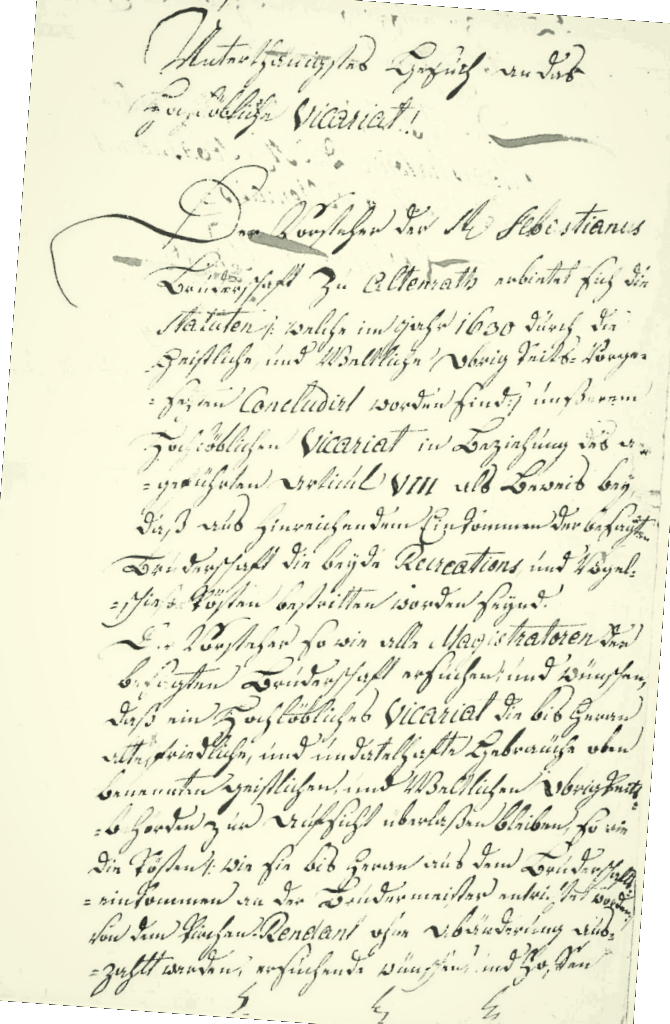 Unterthänigstes Gesuch an das
Hochlöbliche Vicariat!
Der Vorsteher der St Sebistianus
Bruderschaft zu Altenrath erbietet sich die
Statuten /: welche im Jahr 1630 durch die
Geistliche, und Weltliche Obrigkeits-Vorge-
-setzten Concludirt worden sind :/ unserem
Hochlöblichen Vicariat in Beziehung des a
-geführten Articul VIII als Beweis bey,
daß aus hinreichendem Einkommen der besagten
Bruderschaft die beyde Recreations und Vogel-
-schieß Kösten bestritten worden seynd.
Die Vorsteher so wie alle Magistratoren der
besagten Bruderschaft ersuchen, und wünschen,
daß ein Hochlöbliches Vicariat die bis heran
alte, friedliche, und untadelhafte Gebräuche oben
benennten geistlichen, und Weltlichen Obrigkeits-
-behorden zur Aufsicht überlaßen bleiben, so wie
die Kösten /: wie sie bis heran aus dem Bruderschafts-
-einkommen an der Brudermeister entrichtet worden,
von dem Kirchen-Rendant ohne Abänderung aus-
-zahlt werden, ersuchende wünschen, und hoffen